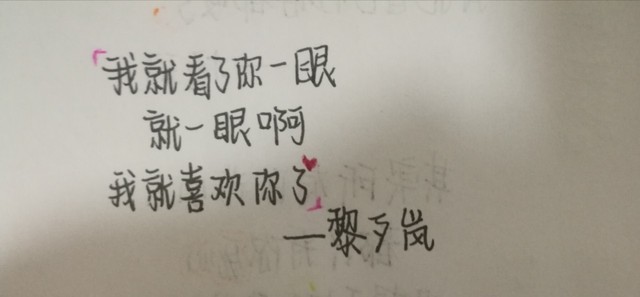 「我就看了你一眼
就一眼啊
我就喜欢你了」
—黎歹岚